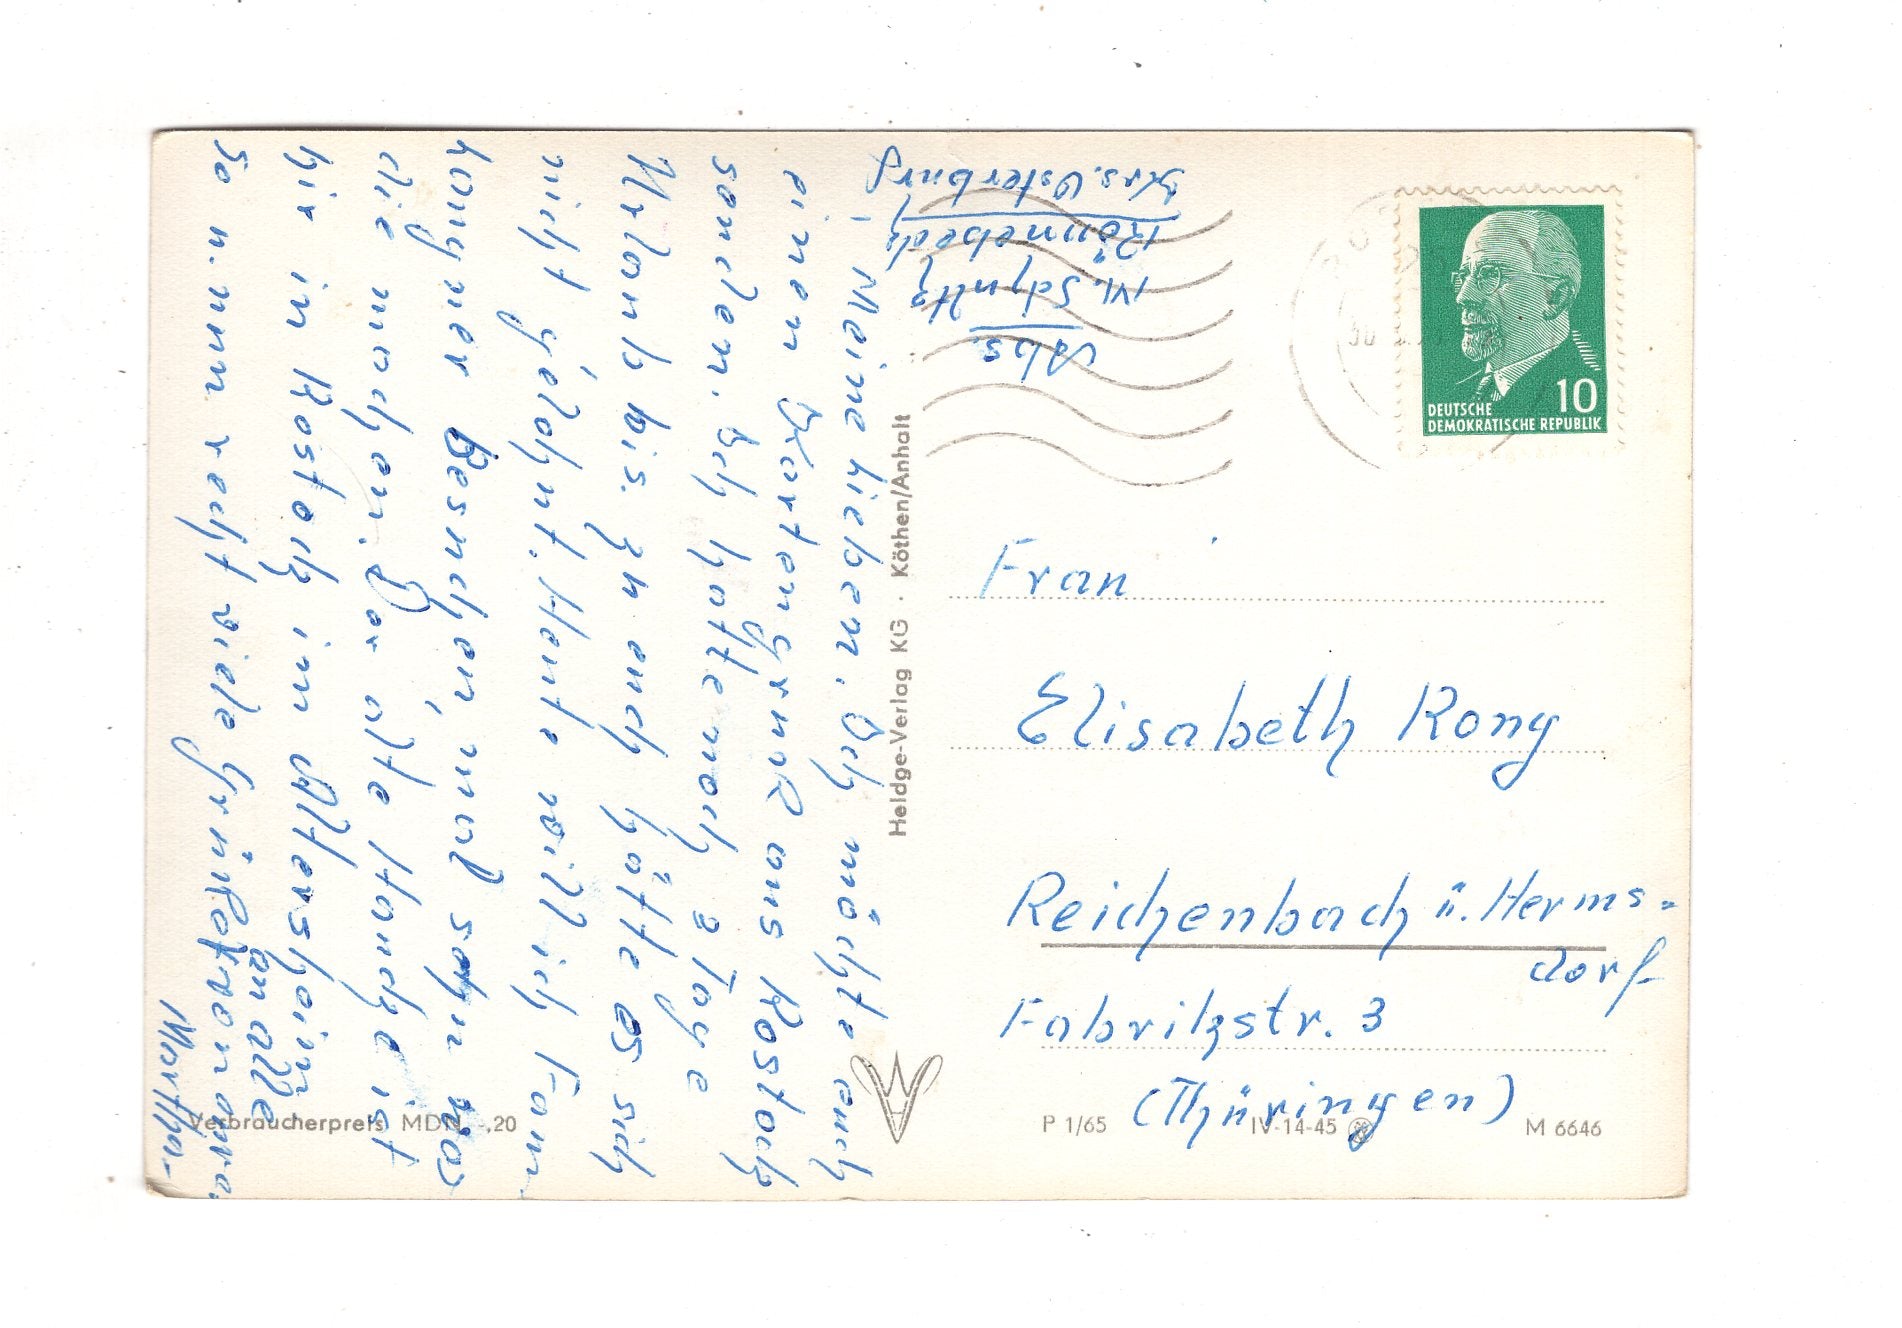 Meine Lieben, Ich möchte euch
einen Kartengruß aus Rostock
senden. Ich hatte noch 2 Tage
Urlaub bis. zu euch hätte es sich
nicht gelohnt. Heute will ich Fam.
Langner besuchen, mal sehn was
die machen. Der alte Hancke ist
hir in Rostock im Altersheim
So n. nun recht viele Grüße von eurer
an alle
Martha
Abs.
M. Schultz
Rönnebeck
Krs. Osterburg
DEUTSCHE
DEMOKRATISCHE REPUBLIK
10
Frau
Elisabeth Rony
Reichenbach ü. Herms=
dorf
Fabrikstr. 3
(Thüringen)
Heldge-Verlag KG · Köthen/Anhalt
Verbraucherpreis MDN -,20
P 1/65
IV-14-45
M 6646